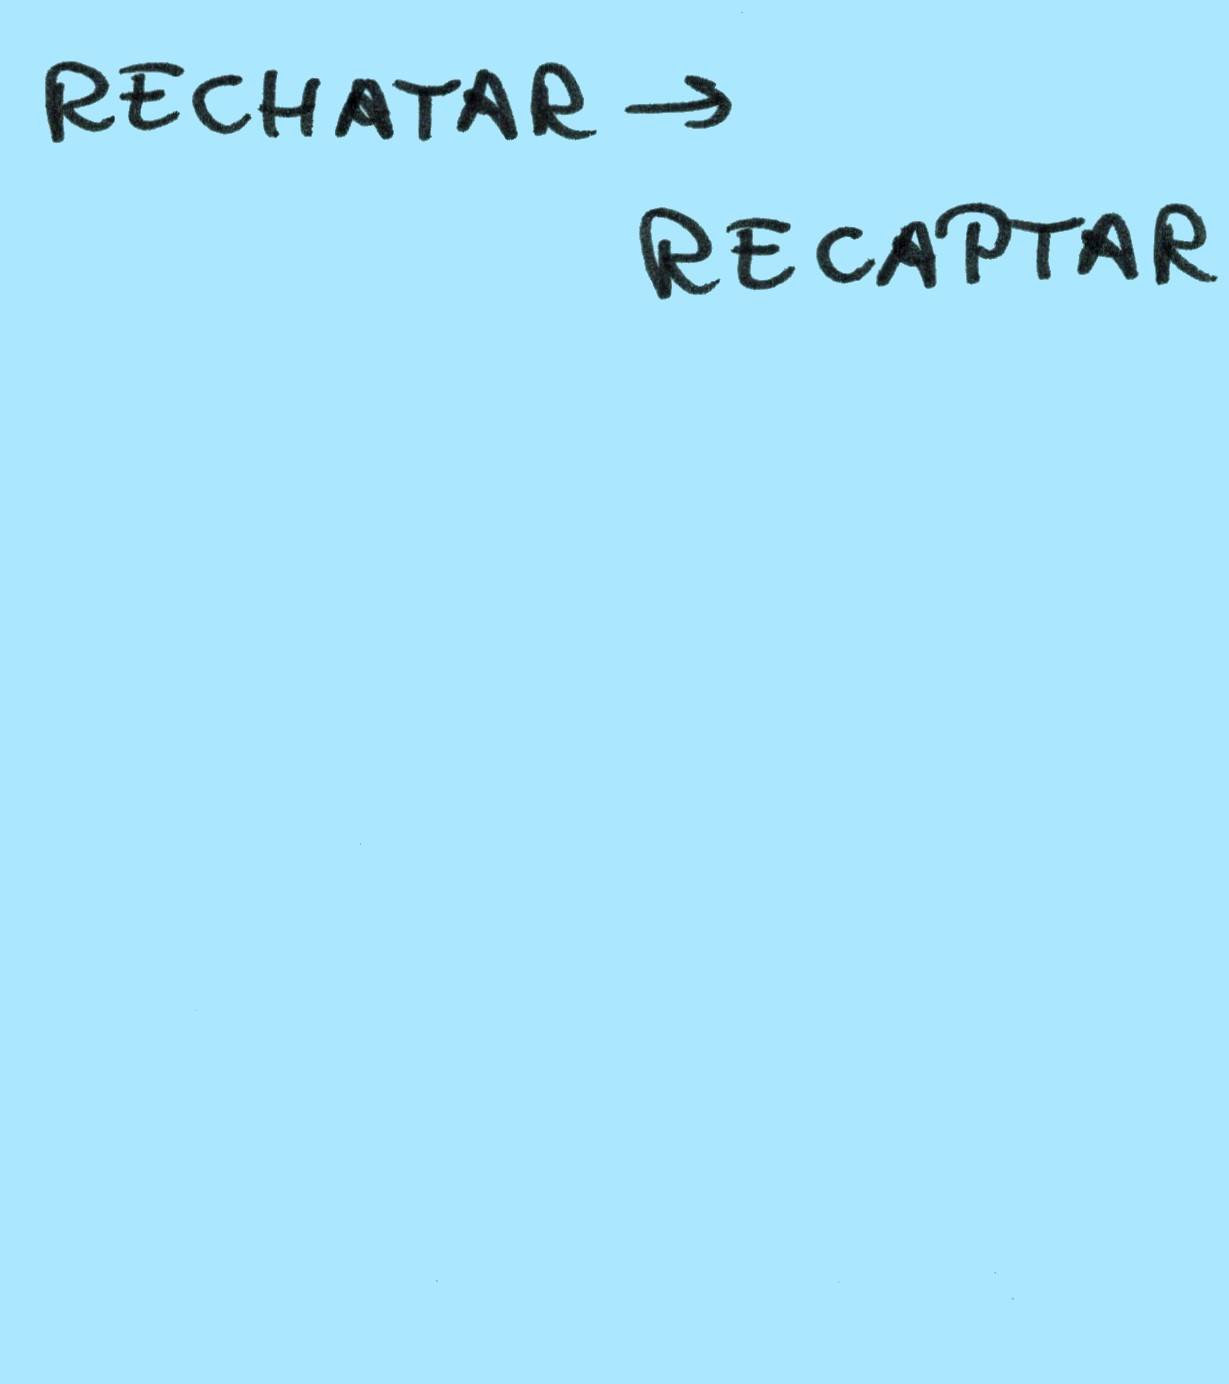 RECHATAR →
RECAPTAR